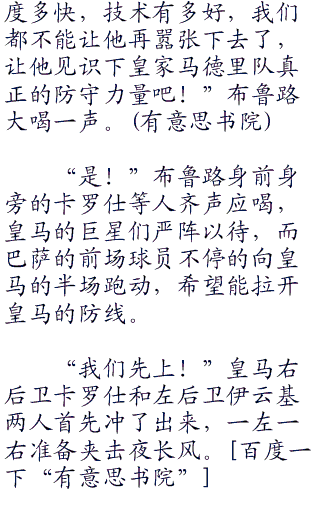 度多快，技术有多好，我们
都不能让他再嚣张下去了，
让他见识下皇家马德里队真
正的防守力量吧！”布鲁路
大喝一声。(有意思书院)
“是！”布鲁路身前身
旁的卡罗仕等人齐声应喝，
皇马的巨星们严阵以待，而
巴萨的前场球员不停的向皇
马的半场跑动，希望能拉开
皇马的防线。
“我们先上！”皇马右
后卫卡罗仕和左后卫伊云基
两人首先冲了出来，一左一
右准备夹击夜长风。[百度一
下“有意思书院”]